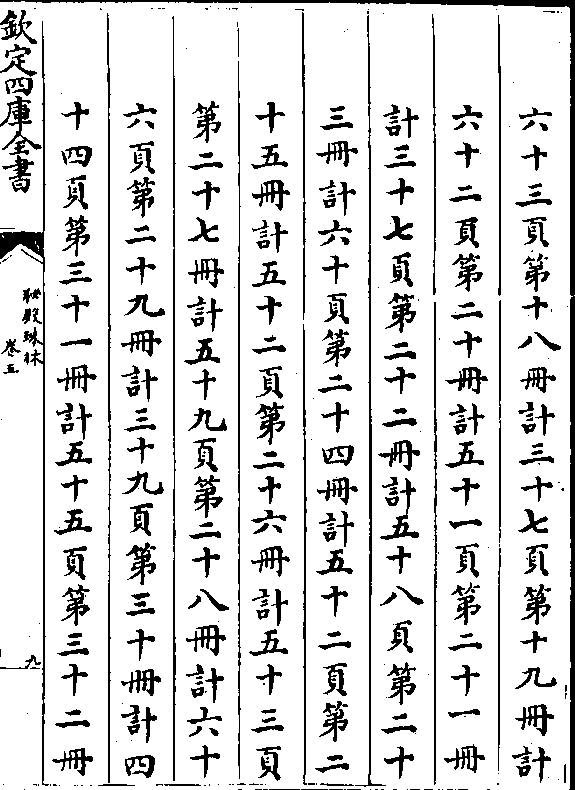 六十三頁第十八冊計三十七頁第十九冊計
六十二頁第二十冊計五十一頁第二十一冊
計三十七頁第二十二冊計五十八頁第二十
三冊計六十頁第二十四冊計五十二頁第二
十五冊計五十二頁第二十六冊計五十三頁
第二十七冊計五十九頁第二十八冊計六十
六頁第二十九冊計三十九頁第三十冊計四
十四頁第三十一冊計五十五頁第三十二冊
欽定四庫全書
秘殿珠林
卷五
九